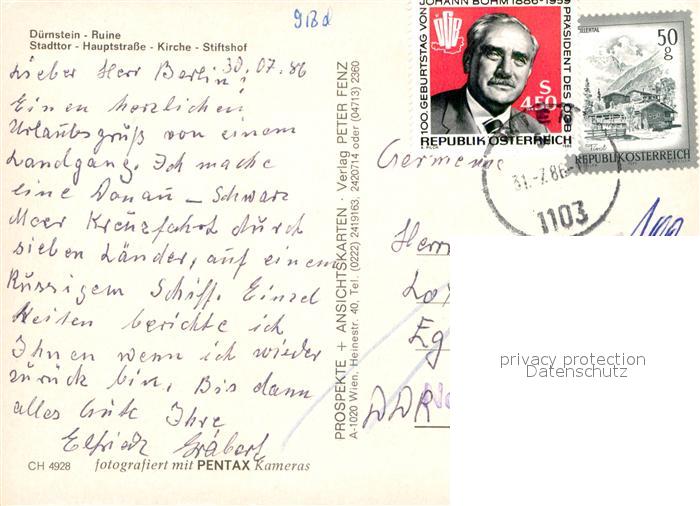 918d
Dürnstein - Ruine
Stadttor - Hauptstraße - Kirche - Stiftshof
Lieber Herr Berlin! 30.07.86
Einen herzlichen
Urlaubsgruß von einem
Landgang. Ich mache
eine Donau - Schwarz
Meer Kreuzfahrt durch
sieben Länder, auf einem
Russigem Schiff. Einzel
heiten berichte ich
Ihnen wenn ich wieder
zurück bin. Bis dann
alles Gute Ihre
Elfriede Gräbert
CH 4928 fotografiert mit PENTAX Kameras
PROSPEKTE + ANSICHTSKARTEN · Verlag PETER FENZ
A-1020 Wien, Heinestr. 40, Tel. (0222) 2419163, 2420714 oder (04713) 2360
100. GEBURTSTAG VON JOHANN BÖHM 1886-1959 PRÄSIDENT DES ÖGB
ÖGB
S 4.50
REPUBLIK ÖSTERREICH
ZILLERTAL
50 g
REPUBLIK ÖSTERREICH
31.-7.86
1103
Germany
Herrn
Eg
DDR
privacy protection
Datenschutz